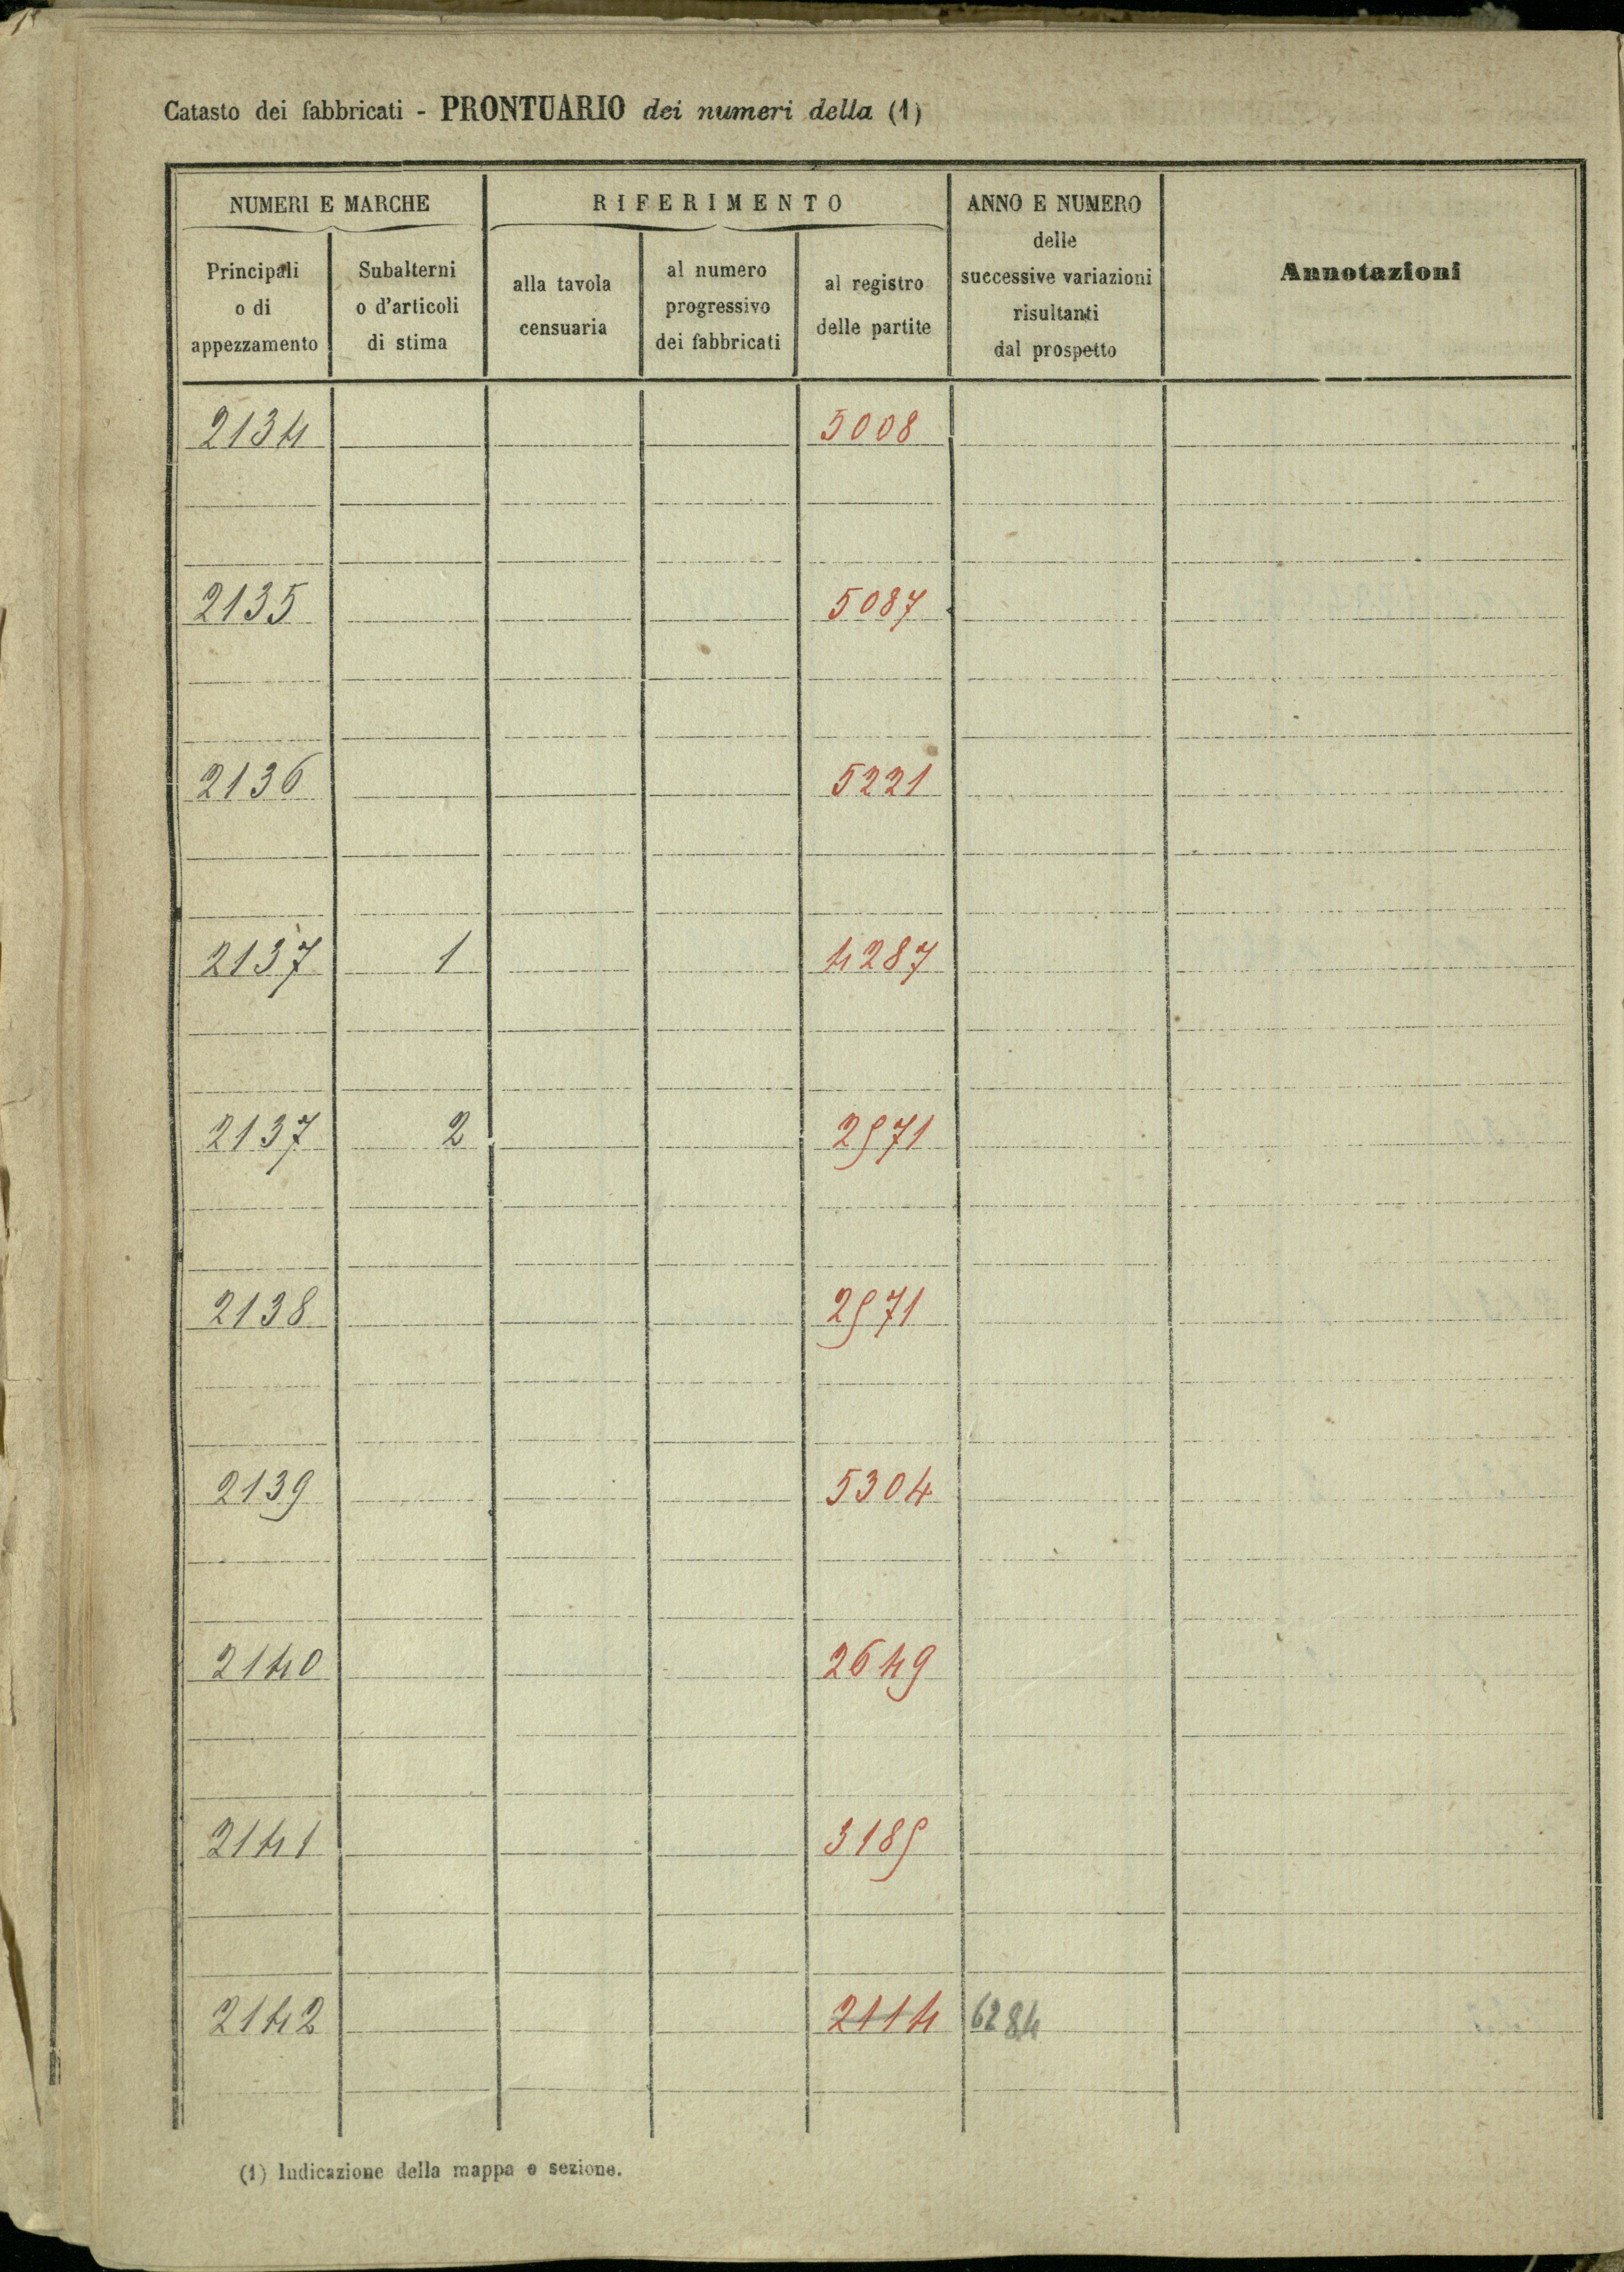 Catasto dei fabbricati - PRONTUARIO dei numeri della (1)
NUMERI E MARCHE
RIFERIMENTO
ANNO E NUMERO
delle
successive variazioni
risultanti
dal prospetto
Annotazioni
Principali
o di
appezzamento
Subalterni
o d'articoli
di stima
alla tavola
censuaria
al numero
progressivo
dei fabbricati
al registro
delle partite
2134 5008
2135 5087
2136 5221
2137 1 4287
2137 2 2971
2138 2971
2139 5304
2140 2649
2141 3189
2142 2114 6284
(1) Indicazione della mappa o sezione.